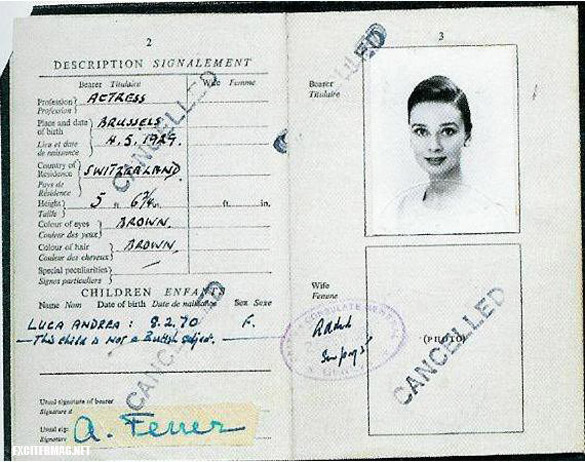 2
DESCRIPTION SIGNALEMENT
Bearer Titulaire Wife Femme
Profession
Profession
ACTRESS
Place and date of birth
Lieu et date de naissance
BRUSSELS
4.5.1929.
Country of Residence
Pays de Résidence
SWITZERLAND
Height
Taille
5 ft. 6¾ in. ft. in.
Colour of eyes
Couleur des yeux
BROWN.
Colour of hair
Couleur des cheveux
BROWN.
Special peculiarities
Signes particuliers
CHILDREN ENFANTS
Name Nom Date of birth Date de naissance Sex Sexe
LUCA ANDREA: 8.2.70 F.
—This child is not a British subject.
Usual signature of bearer
Signature d
Usual sig
Signature
A. Ferrer
CANCELLED
CANCELLED
3
Bearer
Titulaire
Wife
Femme
(PHOTO)
CANCELLED
EXCITERMAG.NET